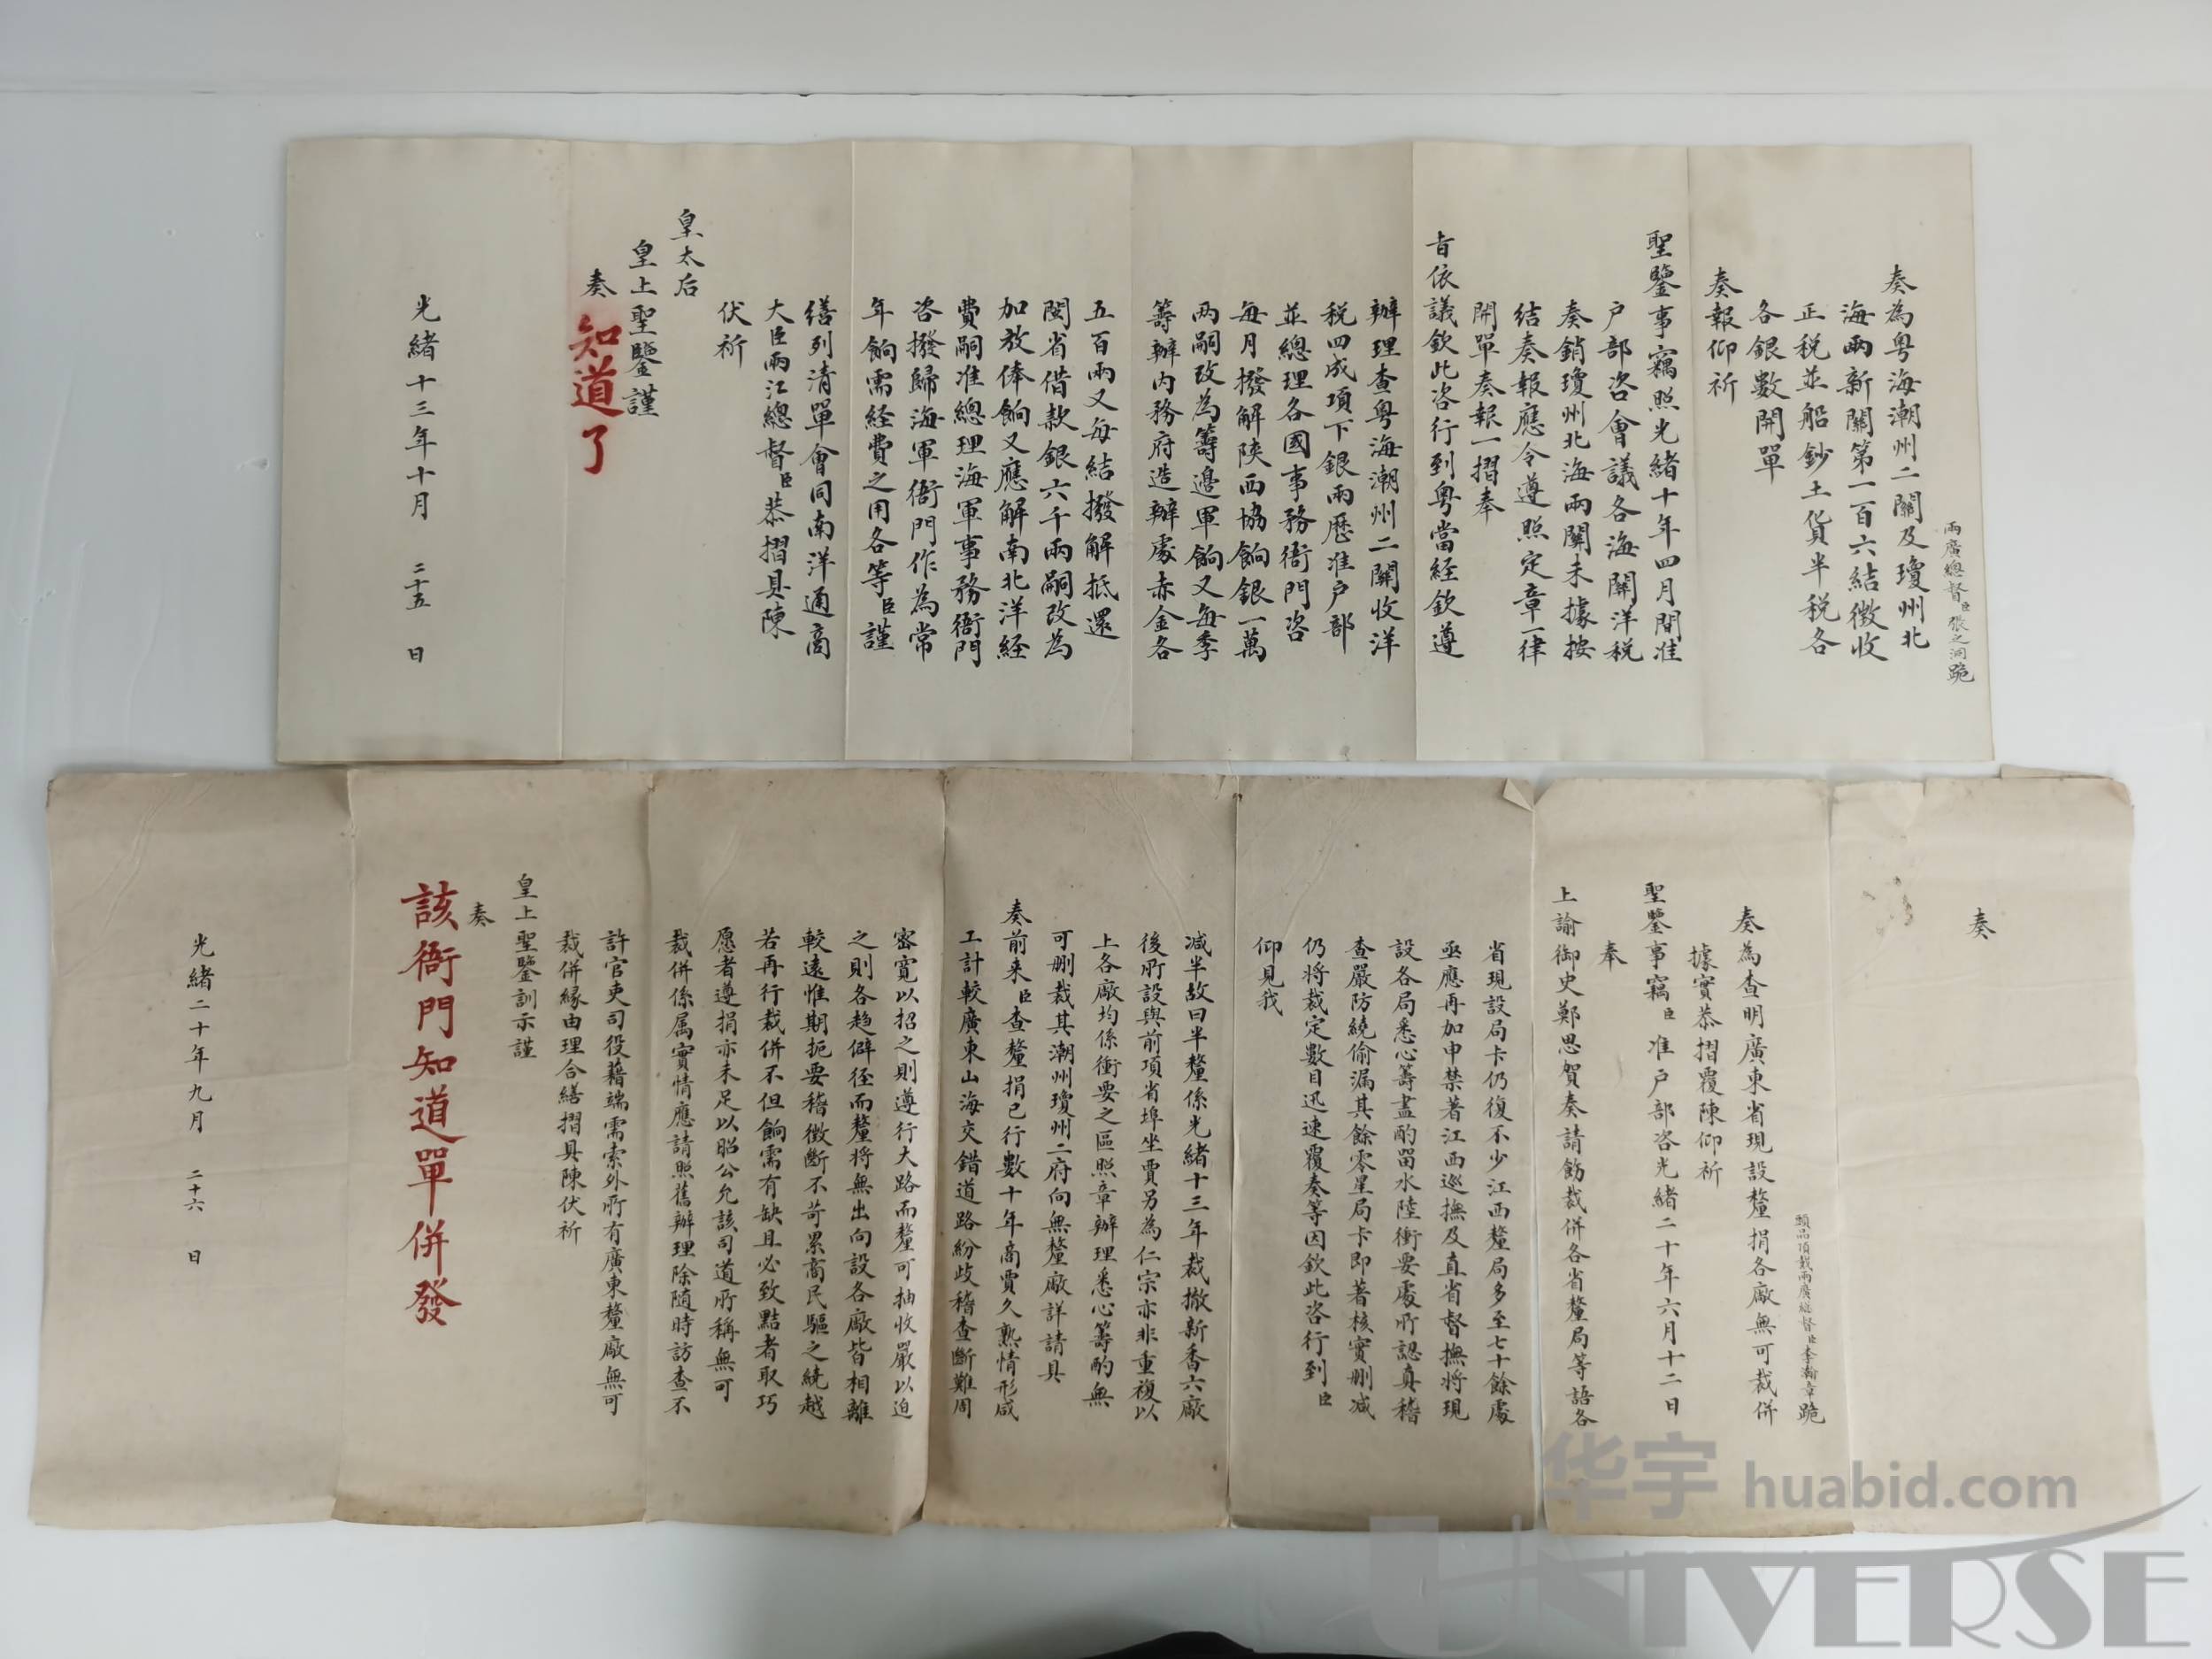 兩廣總督臣張之洞跪
奏為粵海潮州二關及瓊州北
海兩新關第一百六結徵收
正税並船鈔土貨半税各
各銀數開單
奏報仰祈
聖鑒事竊照光緒十年四月間准
户部咨會議各海關洋税
奏銷瓊州北海兩關未據按
結奏報應令遵照定章一律
開單奏報一摺奉
旨依議欽此咨行到粵當経欽遵
辦理查粵海潮州二關收洋
税四成項下銀兩歷准户部
並總理各國事務衙門咨
每月撥解陝西協餉銀一萬
两嗣改為籌邊軍餉又每季
籌辦内務府造辦處赤金各
五百兩又每結撥解抵還
閩省借款銀六千兩嗣改為
加放俸餉又應解南北洋経
費嗣准總理海軍事務衙門
咨撥歸海軍衙門作為常
年餉需経費之用各等臣謹
繕列清單會同南洋通商
大臣兩江總督臣恭摺具陳
伏祈
皇太后
皇上聖鑒謹
奏
知道了
光緒十三年十月 二十五 日
奏
頭品頂戴兩廣總督臣李瀚章跪
奏為查明廣東省現設釐捐各廠無可裁併
據實恭摺覆陳仰祈
聖鑒事竊臣准户部咨光緒二十年六月十二日
奉
上諭御史鄭思賀奏請飭裁併各省釐局等語各
省現設局卡仍復不少江西釐局多至七十餘處
亟應再加申禁著江西巡撫及直省督撫將現
設各局悉心籌畫酌留水陸衝要處所認真稽
查嚴防繞偷漏其餘零星局卡即著核實刪减
仍将裁定數目迅速覆奏等因欽此咨行到臣
仰見我
减半故曰半釐係光緒十三年裁撤新香六廠
後所設與前項省埠坐賈另為仁宗亦非重複以
上各廠均係衝要之區照章辦理悉心籌酌無
可刪裁其潮州瓊州二府向無釐廠詳請具
奏前来臣查釐捐已行數十年商賈久熟情形咸
工計較廣東山海交錯道路紛歧稽查斷難周
密寬以招之則遵行大路而釐可抽收嚴以迫
之則各趋僻徑而釐将無出向設各廠皆相離
較遠惟期扼要稽徵斷不苛累商民驅之繞越
若再行裁併不但餉需有缺且必致點者取巧
愿者遵捐亦未足以昭公允該司道所稱無可
裁併係属實情應請照舊辦理除隨時訪查不
許官吏司役藉端需索外所有廣東釐廠無可
裁併緣由理合繕摺具陳伏祈
皇上聖鑒訓示謹
奏
該衙門知道單併發
光緒二十年九月 二十六 日
华宇 huabid.com
UNIVERSE